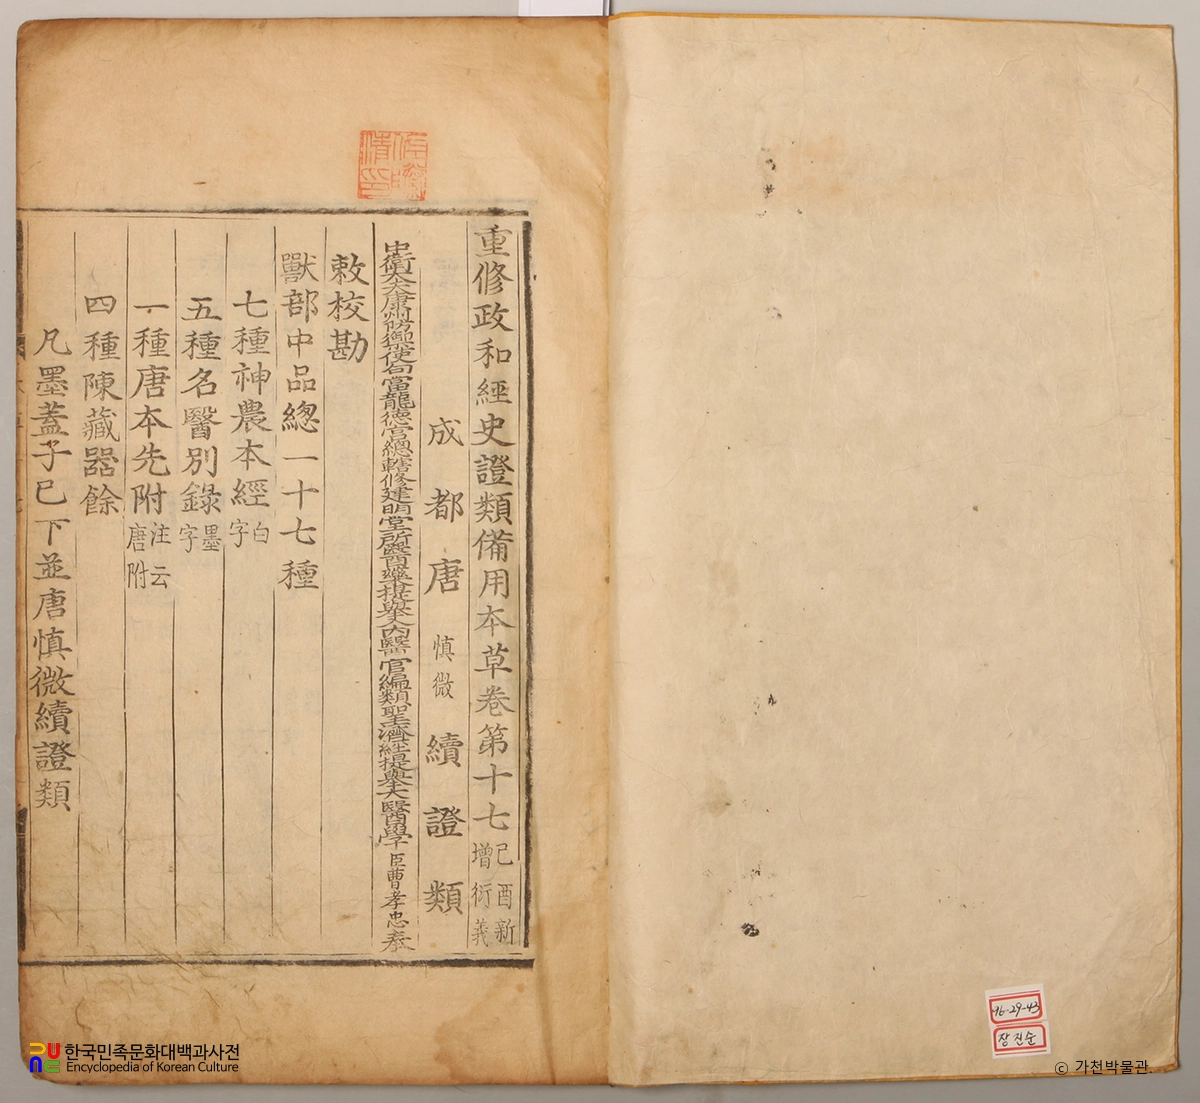 重修政和經史證類備用本草卷第十七己酉新增衍義
成都唐慎微續證類
中衛大夫康州防禦使句當龍德宮總轄修建明堂所醫藥提舉入內醫官編類聖濟經提舉大醫學臣曹孝忠奉
敕校勘
獸部中品總一十七種
七種神農本經白字
五種名醫別錄墨字
一種唐本先附注云唐附
四種陳藏器餘
凡墨蓋子已下並唐慎微續證類
96-29-43
장진순
한국민족문화대백과사전
Encyclopedia of Korean Culture
© 가천박물관.